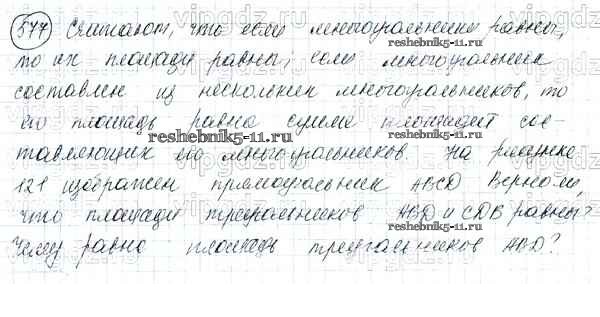 577 Считают, что если многоугольники равны,
то их площади равны; если многоугольник
составлен из нескольких многоугольников, то
его площадь равна сумме площадей сос-
тавляющих его многоугольников. На рисунке
121 изображен прямоугольник ABCD Верно ли,
что площади треугольников ABD и CDB равны?
Чему равна площадь треугольников ABD?
reshebnik5-11.ru
reshebnik5-11.ru
reshebnik5-11.ru